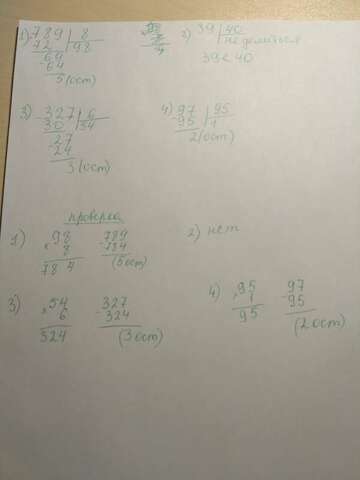 1) 789 | 8
72 | 98
69
64
5 (ост)
2) 39 | 40
не делиться
39 < 40
3) 327 | 6
30 | 54
27
24
3 (ост)
4) 97 | 95
95 | 1
2 (ост)
проверка
1) 98 - 789
x 8 784
784 (5 ост)
2) нет
3) 54 - 327
x 6 324
324 (3 ост)
4) 95 - 97
x 1 95
95 (2 ост)